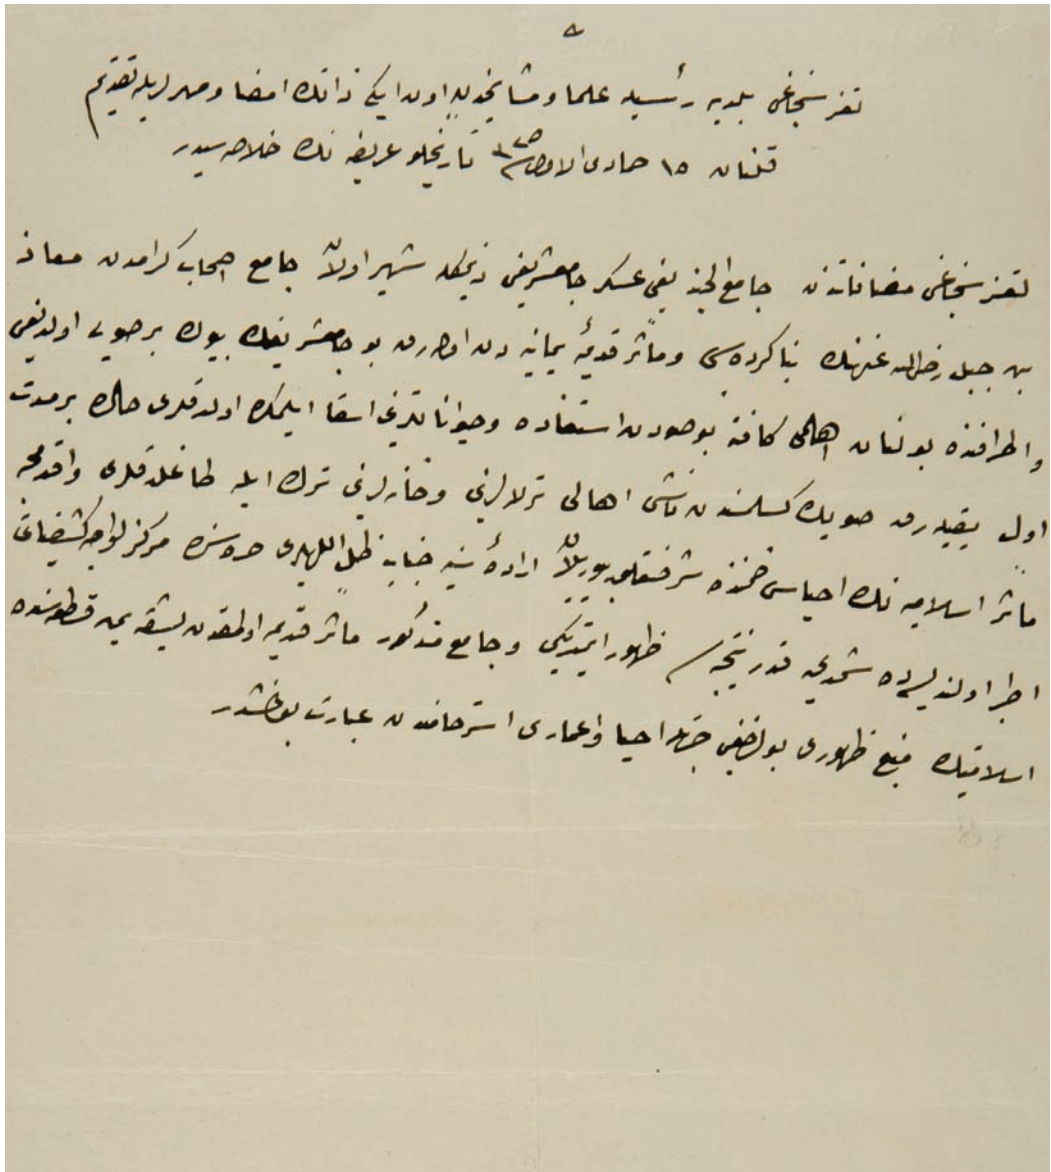 تعز سنجاغی بلدیه رئیسیله علما و مشایخدن اون ایکی ذاتك امضا و مهرلریله تقدیم
قلنان ١٥ جمادی الاولی تاریخلو عریضه نك خلاصه سیدر
تعز سنجاغی مضافاتندن جامع الجند یعنی عسكر جامعشریفی دیمكله شهیر اولان جامع اصحاب كرامدن معاذ
بن جبل رضی الله عنهنك بنا كرده سی و مآثر قدیمهٔ یمانیه دن اوله رق بو جامعشریفك بیوك بر صویی اولدیغی
و اطرافنده بولنان اهالی كافةً بو صودن استفاده و حیواناتلرینی اسقا ایلمكده اولدقلری حالده بر مدت
اول ییقیله رق صوینك كسلمسندن ناشی اهالی ترلالرینی و خانه لرینی ترك ایله طاغلدقلری و اقدمجه
مآثر اسلامیه نك احیاسی ضمننده شرفتعلق بیوریلان ارادهٔ سنیه جناب ظل اللهیلری اوزرینه مركز لواجه كشفیاتی
اجرا اولندیسه ده شمدی یه قدر نتیجه سی ظهور ایتمدیكی و جامع مذكور مآثر قدیمه اولمقدن بشقه یمن قطعه سنده
اسلامیتك منبع ظهوری بولندیغی جهتله احیا و اعماری استرحامندن عبارت بولنمشدر